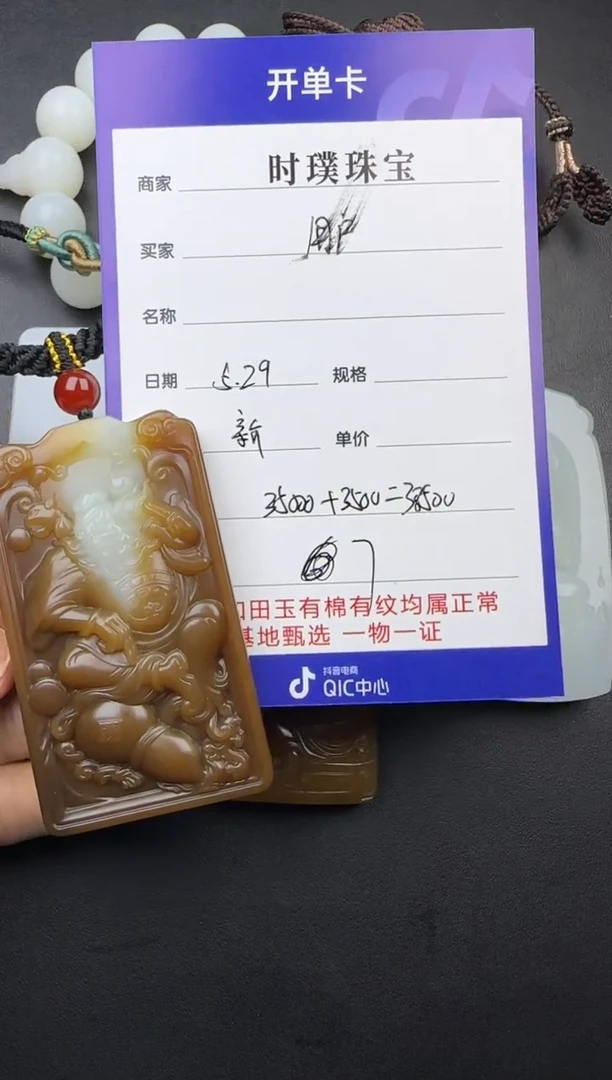 开单卡
商家 时璞珠宝
买家
名称
日期 5.29 规格
新 单价
35000+3500=38500
7
田玉有棉有纹均属正常
基地甄选 一物一证
抖音电商
QIC中心